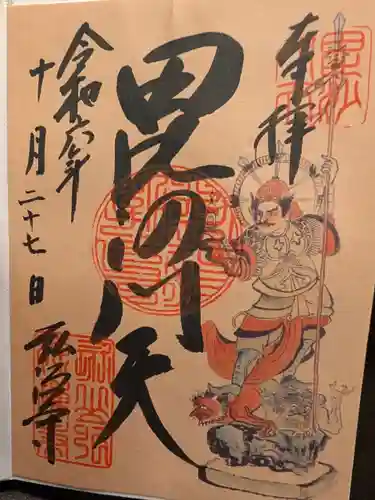 奉拝
毘沙門天
令和六年
十月二十七日
弘法寺